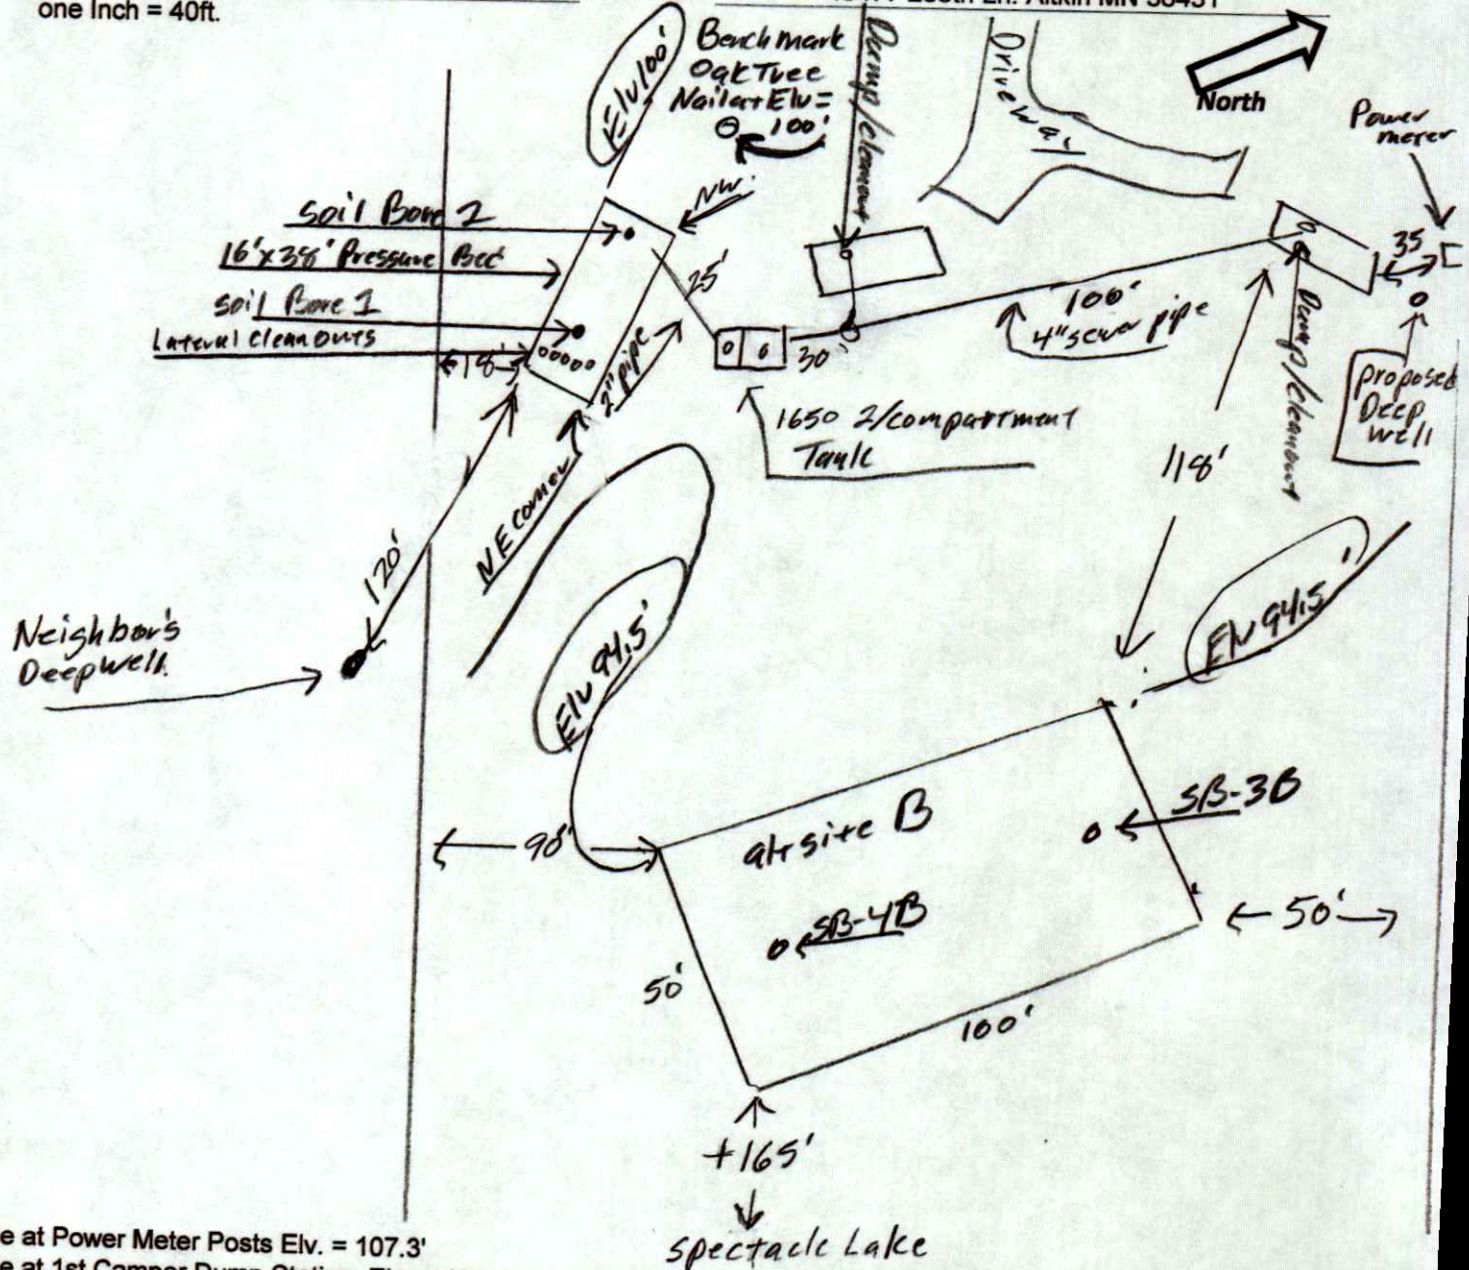 one Inch = 40ft.
Elv 100'
Benchmark
Oak Tree
Nail at Elv =
100'
Dump/cleanout
Driveway
North
Power
meter
NW.
Soil Bore 2
16'x38' Pressure Bed
soil Bore 1
Lateral Cleanouts
18'
25'
2" pipe
30'
100'
4" sewer pipe
35
Dump/cleanout
proposed
Deep
well
1650 2/compartment
Tank
118'
NE corner
120'
Neighbor's
Deepwell.
Elv 94.5'
Elv 94.5'
90'
alt site B
SB-3B
SB-4B
50'
50'
100'
+165'
Spectacle Lake
e at Power Meter Posts Elv. = 107.3'
e at 1st Camper Dump Station